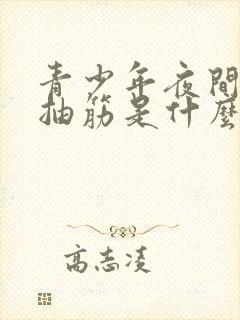 青少年夜間
抽筋是什麼
高志凌